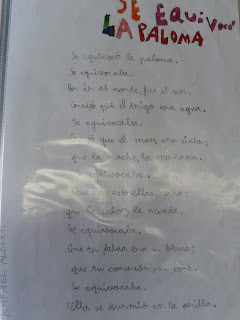 SE EQUIVOCÓ
LA PALOMA
Se equivocó la paloma.
Se equivocaba.
Por ir al norte, fue al sur.
Creyó que el trigo era agua.
Se equivocaba.
que el mar, era
que la noche, la mañana.
Se equivocaba.
que
que la nevada.
Se equivocaba.
Que tu falda era su blusa;
que tu corazón, su casa.
Se equivocaba.
(Ella se durmió en la orilla.
RAFAEL ALBERTI